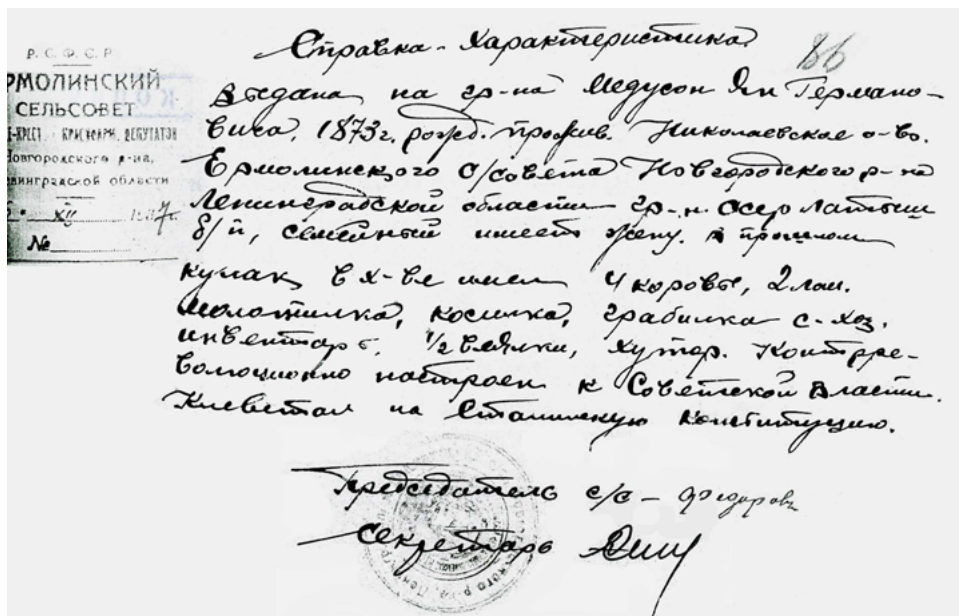 Справка-Характеристика
86
Р.С.Ф.С.Р
РМОЛИНСКИЙ
СЕЛЬСОВЕТ
КРЕСТ. КРАСНОАРМ. ДЕПУТАТОВ
Новгородского р-на,
Ленинградской области
XII 1937г.
№
Выдана на гр-на Медусон Ян Германо-
вича, 1873г. рожд. прожив. Николаевское о-во.
Ермолинского с/совета Новгородского р-на
Ленинградской области гр-н. СССР латыш
б/п, семейный имеет жену. в прошлом
кулак, в х-ве имел 4 коровы, 2 лош.
молотилка, косилка, грабилка с-хоз.
инвентарь. 1/2 веялки, хутор. Контрре-
волюционно настроен к Советской власти.
Клеветал на Сталинскую конституцию.
Председатель с/с - Федоров
Секретарь